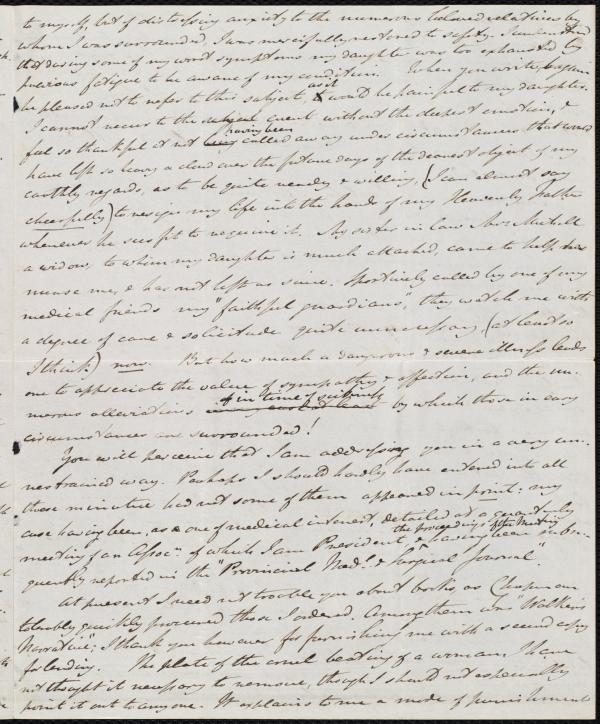 to myself, but of distressing anxiety to the numerous beloved relatives by
whom I was surrounded, I was mercifully restored to safety. I understand
that during some of my worst symptoms my daughter was too exhausted by
previous fatigue to be aware of my condition. When you write, again
be pleased not to refer to this subject, as it would be painful to my daughter.
I cannot recur to the event without the deepest emotion, &
feel so thankful at not having been called away under circumstances that would
have left so heavy a cloud over the future days of the dearest object of my
earthly regards, as to be quite ready & willing, (I can almost say
cheerfully) to resign my life into the hands of my Heavenly Father
whenever he sees fit to require it. My sister in law Mrs Mitchell
a widow, to whom my daughter is much attached, came to help her
nurse me, & has not left us since. Sportively called by one of my
medical friends my "faithful guardians", they watch me with
a degree of care & solicitude quite unnecessary, (at least so
I think) now. But how much a dangerous & severe illness leads
one to appreciate the value of sympathy & affection, and the nu-
merous alleviations in time of by which those in easy
circumstances are surrounded!
You will perceive that I am addressing you in a very un-
restrained way. Perhaps I should hardly have entered into all
these minutiae had not some of them appeared in point; my
case having been, as one of medical interest, detailed at a quarterly
meeting of an Assocn. of which I am President, & the proceedings of the meeting having been subse-
quently reported in the "Provincial Medl. & Surgical Journal".
At present I need not trouble you about books, as Chapman
tolerably quickly procured those I ordered. Among them was "Walker's
Narrative"; I thank you however for furnishing me with a second copy
for lending. The plate of the cruel beating of a woman, I have
not thought it necessary to remove, though I should not especially
point it out to anyone. It explains to me a mode of punishment